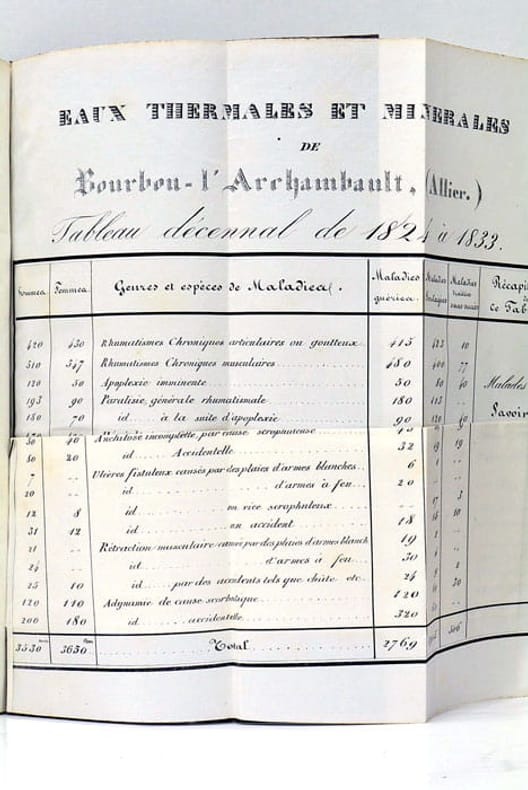 EAUX THERMALES ET MINERALES
DE
Bourbon-l'Archambault, (Allier.)
Tableau décennal de 1824 à 1833.
Hommes Femmes Genres et espèces de Maladies. Maladies guéries. Malades soulagés Maladies Récapi
ce Tab
420 450 Rhumatismes Chroniques articulaires ou goutteux 415 425 10
510 547 Rhumatismes Chroniques musculaires 480 400 77
120 50 Apoplexie imminente 50 80 40 Malades
193 90 Paralisie, générale rhumatismale 180 113 ..
180 70 id. à la suite d'apoplexie 90 120 40 Savoir
50 40 Ankilose incomplette, par cause scrophuleuse
80 20 id. Accidentelle 32 19 19
7 .. Ulcères fistuleux causés par des plaies d'armes blanches 6
20 .. id. d'armes à feu 20
12 8 id. un vice scrophuleux .. 17 3
31 12 id. un accident 18 10
21 .. Rétraction musculaire causée par des plaies d'armes blanch 19
24 .. id. d'armes à feu 2
25 10 id. par des accidents tels que chûte etc. 24 30
120 110 Adynamie de cause scorbutique 120
200 180 id. accidentelle 320
3530 3630 Total 2769 506